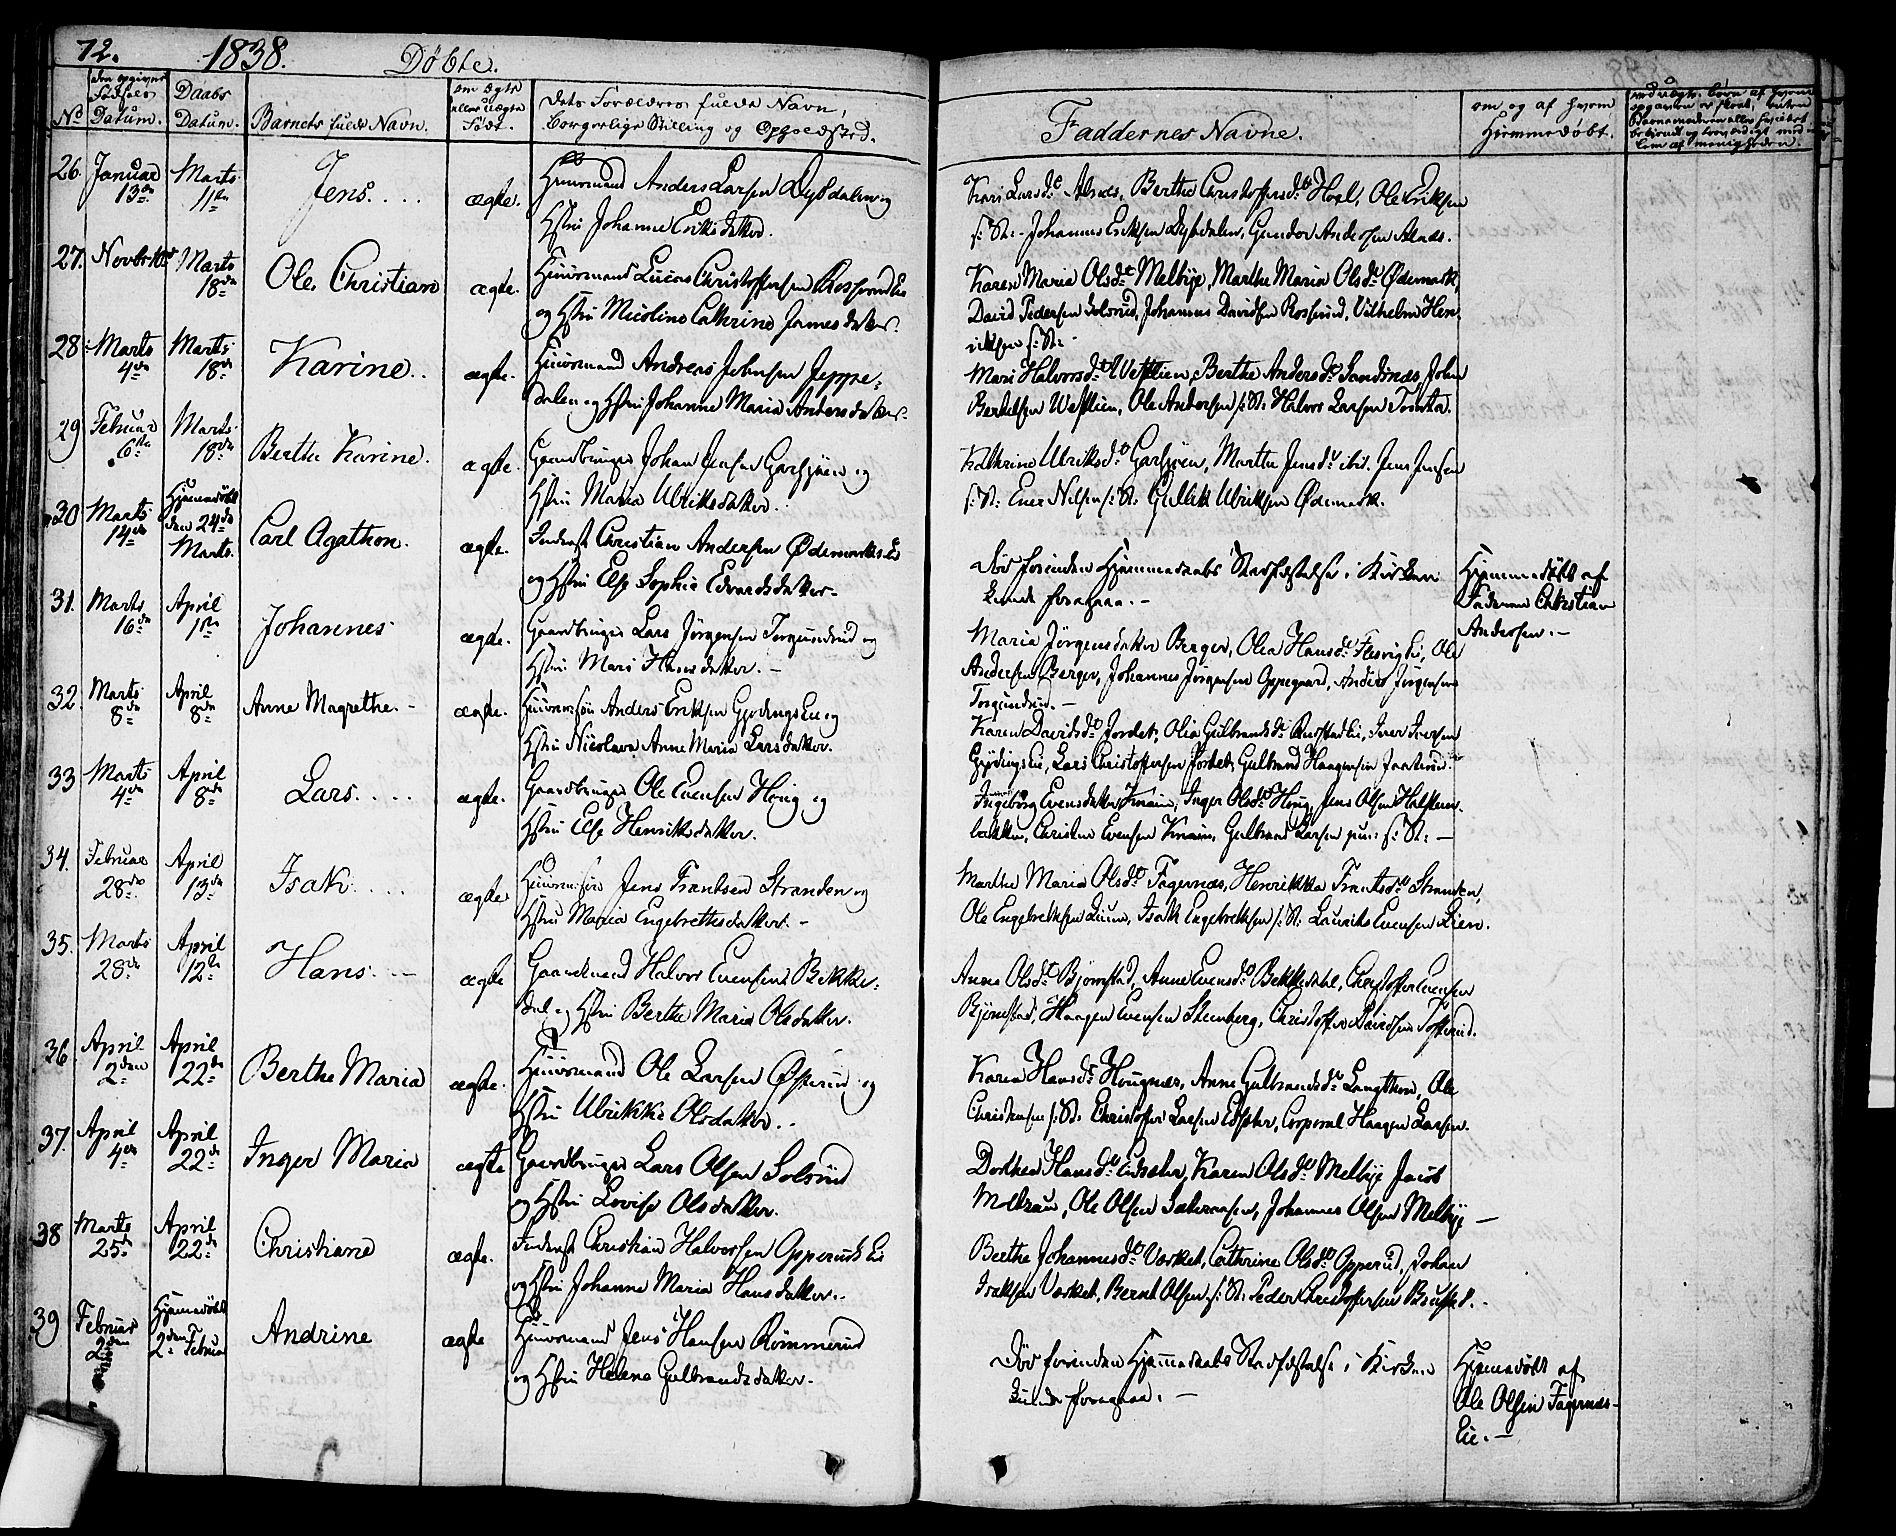 72. 1838. Døbte.
No
den opgivne Fødsels Datum.
Daabs Datum.
Barnets fulde Navn.
om ægte eller uægte Født.
dets Forældres fulde Navn,
borgerlige Stilling og Opholdsted.
Faddernes Navne.
om og af hvem
Hjemmedøbt.
26. Januar 13de Marts 11te Jens. ægte.
Huusmand Anders Larsen Dybdalen og
Hstru Johanne Eriksdatter.
Kari Larsdt. Alnæs, Berthe Christoffersdt. Hoel, Ole Eriksen
s: St: Johannes Eriksen Dybdalen, Gunder Andersen Alnæs.
27. Marts 18de Ole Christian ægte.
Huusmand Lucas Christoffersen
og Hstru Nicoline Cathrine
Karen Maria Olsdt. Melbye, Marthe Maria Olsdt. Ødemark,
David Pedersen Solsrud, Johannes Davidsen Rosserud, Vilhelm Hen-
riksen s: St:
28. Marts 4de Marts 18de Karine. ægte.
Huusmand Andreas Johnsen Jeppe-
dalen og Hstru Johanne Maria Andersdatter.
Mari Halvorsdt. Westlien, Berthe Andersdt. Sandsnæs, John
Bertelsen Westlien, Ole Andersen s: St: Halvor Larsen Tomta.
29 Februar 6te Marts 18de Berthe Karine. ægte.
Gaardbruger Johan Jensen Garsjøen og
Hstru Maria Ulriksdatter.
Kathrine Ulriksdt. Garsjøen, Marthe Jensdt. ibid. Jens Jensen
s: St: Ener Nilsen s: St: Gullik Ulriksen Ødemark.
30 Marts 14de Hjemmedøbt den 24de Marts. Carl Agathon. ægte.
Inderst Christian Andersen Ødemarks Eie
og Hstru Else Sophie Edvardsdatter.
Døde forinden Hjemmedaabs Stadfæstelse i Kirken
kunde foregaa. -
Hjemmedøbt af
Faderen Christian
Andersen. -
31. Marts 16de April 1ste Johannes ægte.
Gaardbruger Lars Jørgensen Torgundrud og
Hstru Mari Hansdatter. -
Maria Jørgensdatter Berger, Olea Hansdt. Flesvigh, Ole
Andersen Berger, Johannes Jørgensen Oppegaard, Anders Jørgensen
Torgundrud. -
32. Marts 8de April 8de Anne Magrethe. - ægte.
Anders Eriksen Gjødings Eie og
Hstru Nicolava Anne Maria Larsdatter.
Karen Davidsdt. Jordet, Olia Gulbrandsdt. Iver Iversen
Gjødings Eie, Lars Christoffersen Jordet, Gulbrand Haagensen
33 Marts 4de April 8de Lars. ægte.
Gaardbruger Ole Evensen Houg og
Hstru Else Henriksdatter.
Ingeborg Evensdatter Knain, Inger Olsdt. Houg, Jens Olsen Halsteen-
bakken, Christen Evensen Knain, Gulbrand Larsen jun: s: St: -
34. Februar 28de April 13de Isak. ægte
Jens Frantsen Stranden og
Hstru Maria Engebretsdatter. -
Marthe Maria Olsdt. Fagernæs, Henrikka Frantsdt. Stranden,
Ole Engebretsen Isak Engebretsen s: St: Lauritz Evensen Lien.
35. Marts 28de April 12te Hans. ægte
Gaardmand Halvor Evensen Bekke-
dal og Hstru Berthe Maria Olsdatter.
Anne Olsdt. Bjørnstad, Anne Evensdt. Bekkedahl, Christoffer Evensen
Bjørnstad, Haagen Evensen Steenberg, Christoffer Davidsen Tosterud.
36. April 2den April 22de Berthe Maria ægte.
Huusmand Ole Larsen Østerud og
Hstru Ulrikke Olsdatter.
Karen Hansdt. Hougnæs, Anne Gulbrandsdt. Ole
Christensen s: St: Christoffer Larsen Corporal Haagen Larsen.
37. April 4de April 22de Inger Maria ægte
Gaardbruger Lars Olsen Solsrud
og Hstru Lovise Olsdatter.
Dorthea Hansdt. Karen Olsdt. Melbye Jacob
Moltzau, Ole Olsen Johannes Olsen Melbye -
38 Marts 25de April 22de Christiane ægte.
Inderst Christian Halvorsen Opperuds Eie
og Hstru Johanne Maria Hansdatter.
Berthe Johannesdt. Værket, Cathrine Olsdt. Opperud, Johan
Isaksen Værket, Bernt Olsen s: St: Peder Christoffersen
39 Februar 2den Hjemmedøbt 2den Februar Andrine ægte
Huusmand Jens Hansen Rømmerud
og Hstru Helene Gulbrandsdatter.
Døde forinden Hjemmedaabs Stadfæstelse i Kirken
kunde foregaa. -
Hjemmedøbt af
Ole Olsen Fagernæs-
Eie. -